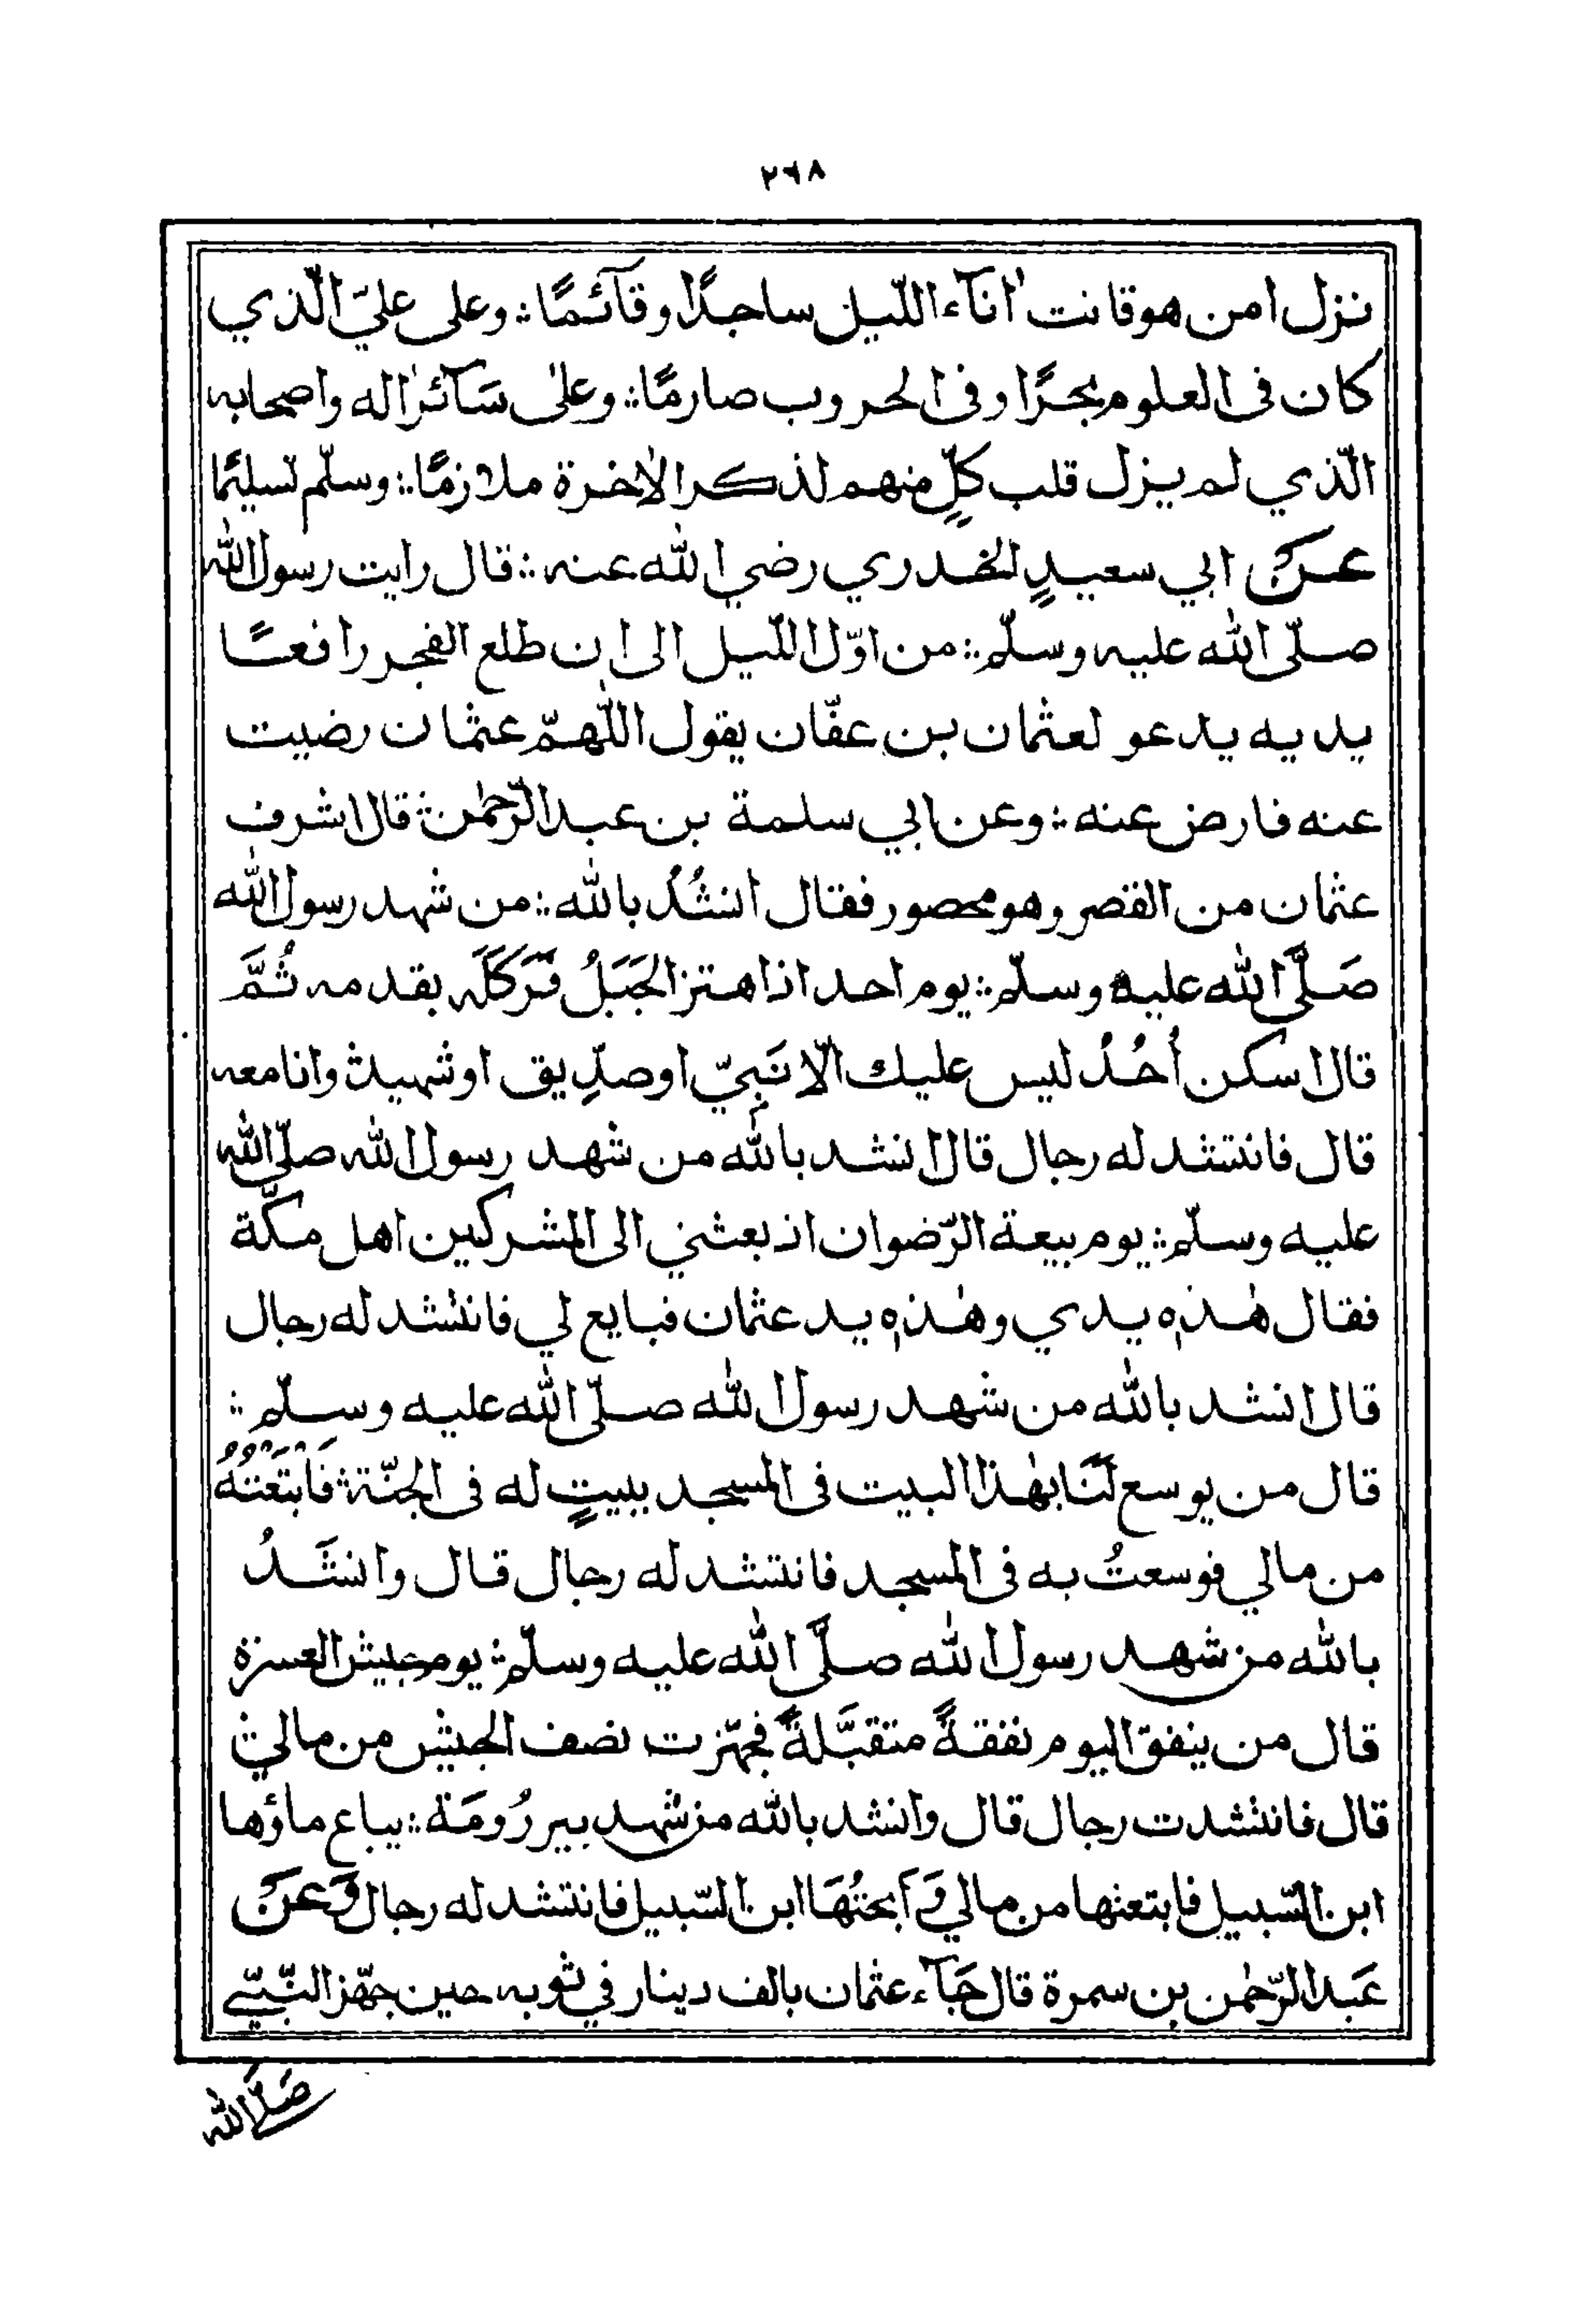 ٢٦٨
نزل امن هو قانت اٰنآء اللّيل ساجدًا وقآئمًا؞ وعلى عليّ الّذي
كان فى العلوم بحرًا وفى الحروب صارمًا؞ وعلى سَآئر اله واصحابه
الّذي لم يزل قلب كلٍّ منهم لذكر الاٰخرة ملازمًا؞ وسلّم تسليمًا
عن ابي سعيدٍ الخدري رضي الله عنه؞ قال رايت رسول الله
صلّى الله عليه وسلّم؞ من اوّل اللّيل الى ان طلع الفجر رافعًا
يديه يدعو لعثمان بن عفّان يقول اللّٰهمّ عثمان رضيت
عنه فارض عنه؞ وعن ابي سلمة بن عبد الرّحمٰن؞ قال اشرف
عثمان من القصر وهو محصور فقال انشُدُ بالله؞ من شهد رسول الله
صَلَّى الله عليه وسلّم؞ يوم احد اذا هتز الجَبَلُ فَرَكَلَه بقدمه ثُمَّ
قال اسكن أُحُدُ ليس عليك الّا نَبِيّ او صدِّيق او شهيد؞ وانا معه
قال فانتشد له رجال قال انشد بالله من شهد رسول الله صلّى الله
عليه وسلّم؞ يوم بيعة الرّضوان اذ بعثني الى المشركين اهل مكّة
فقال هٰذه يدي وهٰذه يد عثمان فبايع لي فانتشد له رجال
قال انشد بالله من شهد رسول الله صلّى الله عليه وسلّم؞
قال من يوسع لَنَا بهٰذا البيت فى المسجد ببيتٍ له فى الجنّة؞ فَابْتَعْتُهُ
من مالي فوسعتُ به فى المسجد فانتشد له رجال قال وانشَدُ
بالله من شهد رسول الله صلَّى الله عليه وسلّم؞ يوم جيش العسرة
قال من ينفق اليوم نفقةً متقبَّلةً فجهّزت نصف الجيش من مالي؞
قال فانتشدت رجال قال وانشد بالله من شهد بير رُومَة؞ يباع ماؤها
ابن السّبيل فابتعتها من مالي وَاَبحتُهَا ابن السّبيل فانتشد له رجال وَعن
عَبد الرّحمٰن بن سمرة قال جَآء عثمان بالف دينار في ثوبه حين جهّز النّبيّ
صَلَّى الله